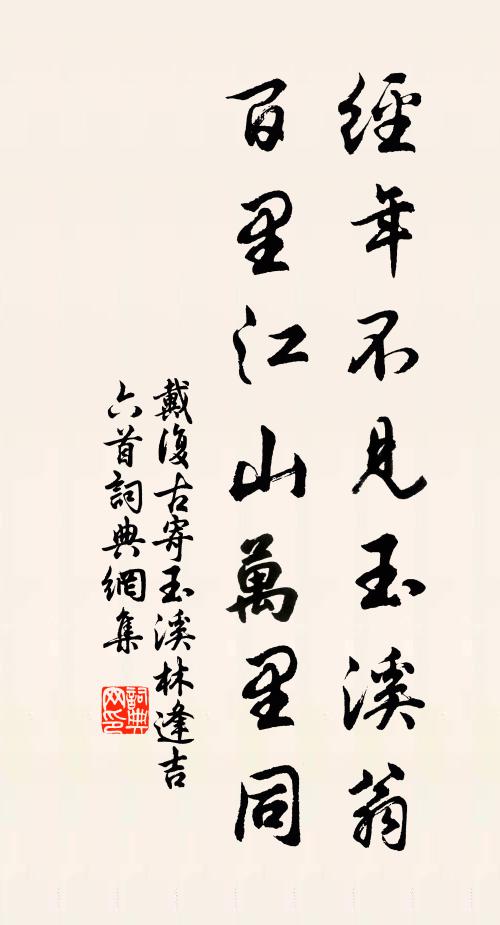 經年不見玉溪翁
百里江山萬里同
戴復古寄玉溪林逢吉
六首詞典網集
詞典网印